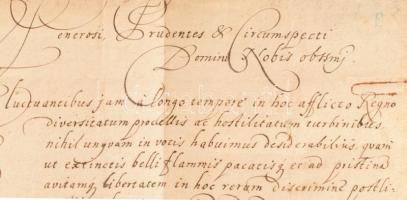 Generosi, Prudentes & Circumspecti
Domini Nobis obssmj.
Fluctuantibus jam a longo tempore in hoc afflicto Regno
diversitatum procellis ac hostilitatum turbinibus
nihil unquam in votis habuimus desiderabilius, quam
ut extinctis belli flammis pacatisq et ad pristinã
avitamq libertatem in hoc rerum discrimine postli-